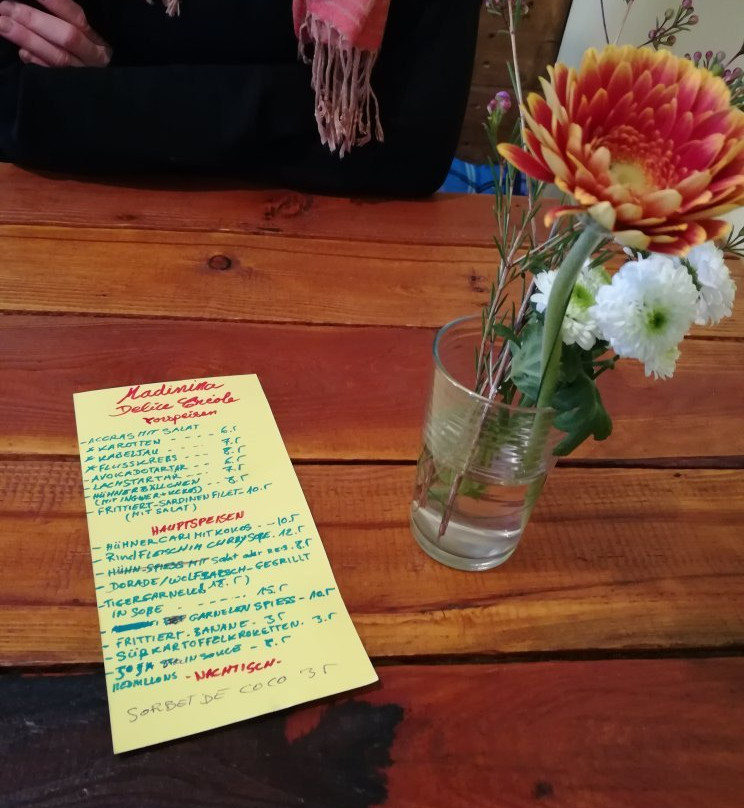 Madinina
Delice Créole
vorspeisen
- ACCRAS MIT SALAT
* KAROTTEN - - - - 6.5
* KABELJAU - - - - 7.5
* FLUSSKREBS - - - - 8.5
- AVOKADOTARTAR - - - 6.5
- LACHSTARTAR - - - - 7.5
- HÜHNERBÄLLCHEN - - - 8.5
(MIT INGWER + KOKOS)
- FRITTIERT-SARDINEN FILET - 10.5
(MIT SALAT)
HAUPTSPEISEN
- HÜHNERCARI MIT KOKOS - - 10.5
- Rindfleisch in CURRYSOßE. 12.5
- HÜHN-SPIESS MIT Salat oder 8.5
- DORADE/WOLFBARSCH-GEGRILLT
18.5)
- TIGERGARNELEN
IN SOßE - - - - - 15.5
- GARNELEN SPIESS - 10.5
- FRITTIERT. BANANE - 3.5
- SÜßKARTOFFELKROKETTEN. 3.5
- SOJA IN SAUCE - 8.5
MEDAILLONS - NACHTISCH -
SORBET DE COCO 3.5